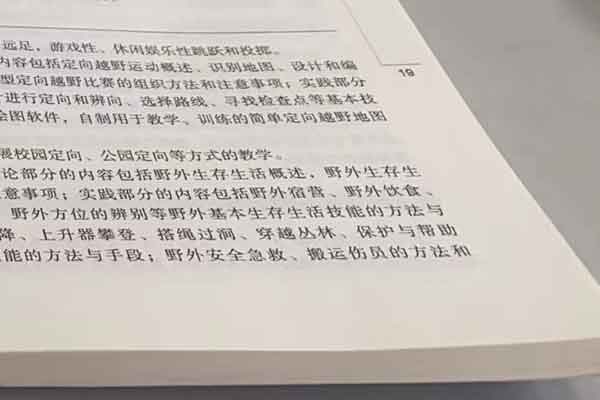 远足，游戏性、休闲娱乐性跳跃和投掷。
内容包括定向越野运动概述、识别地图、设计和编
19
型定向越野比赛的组织方法和注意事项；实践部分
进行定向和辨向、选择路线、寻找检查点等基本技
绘图软件，自制用于教学、训练的简单定向越野地图
展校园定向、公园定向等方式的教学。
论部分的内容包括野外生存生活概述，野外生存生
意事项；实践部分的内容包括野外宿营、野外饮食、
野外方位的辨别等野外基本生存生活技能的方法与
降、上升器攀登、搭绳过涧、穿越丛林、保护与帮助
能的方法与手段；野外安全急救、搬运伤员的方法和